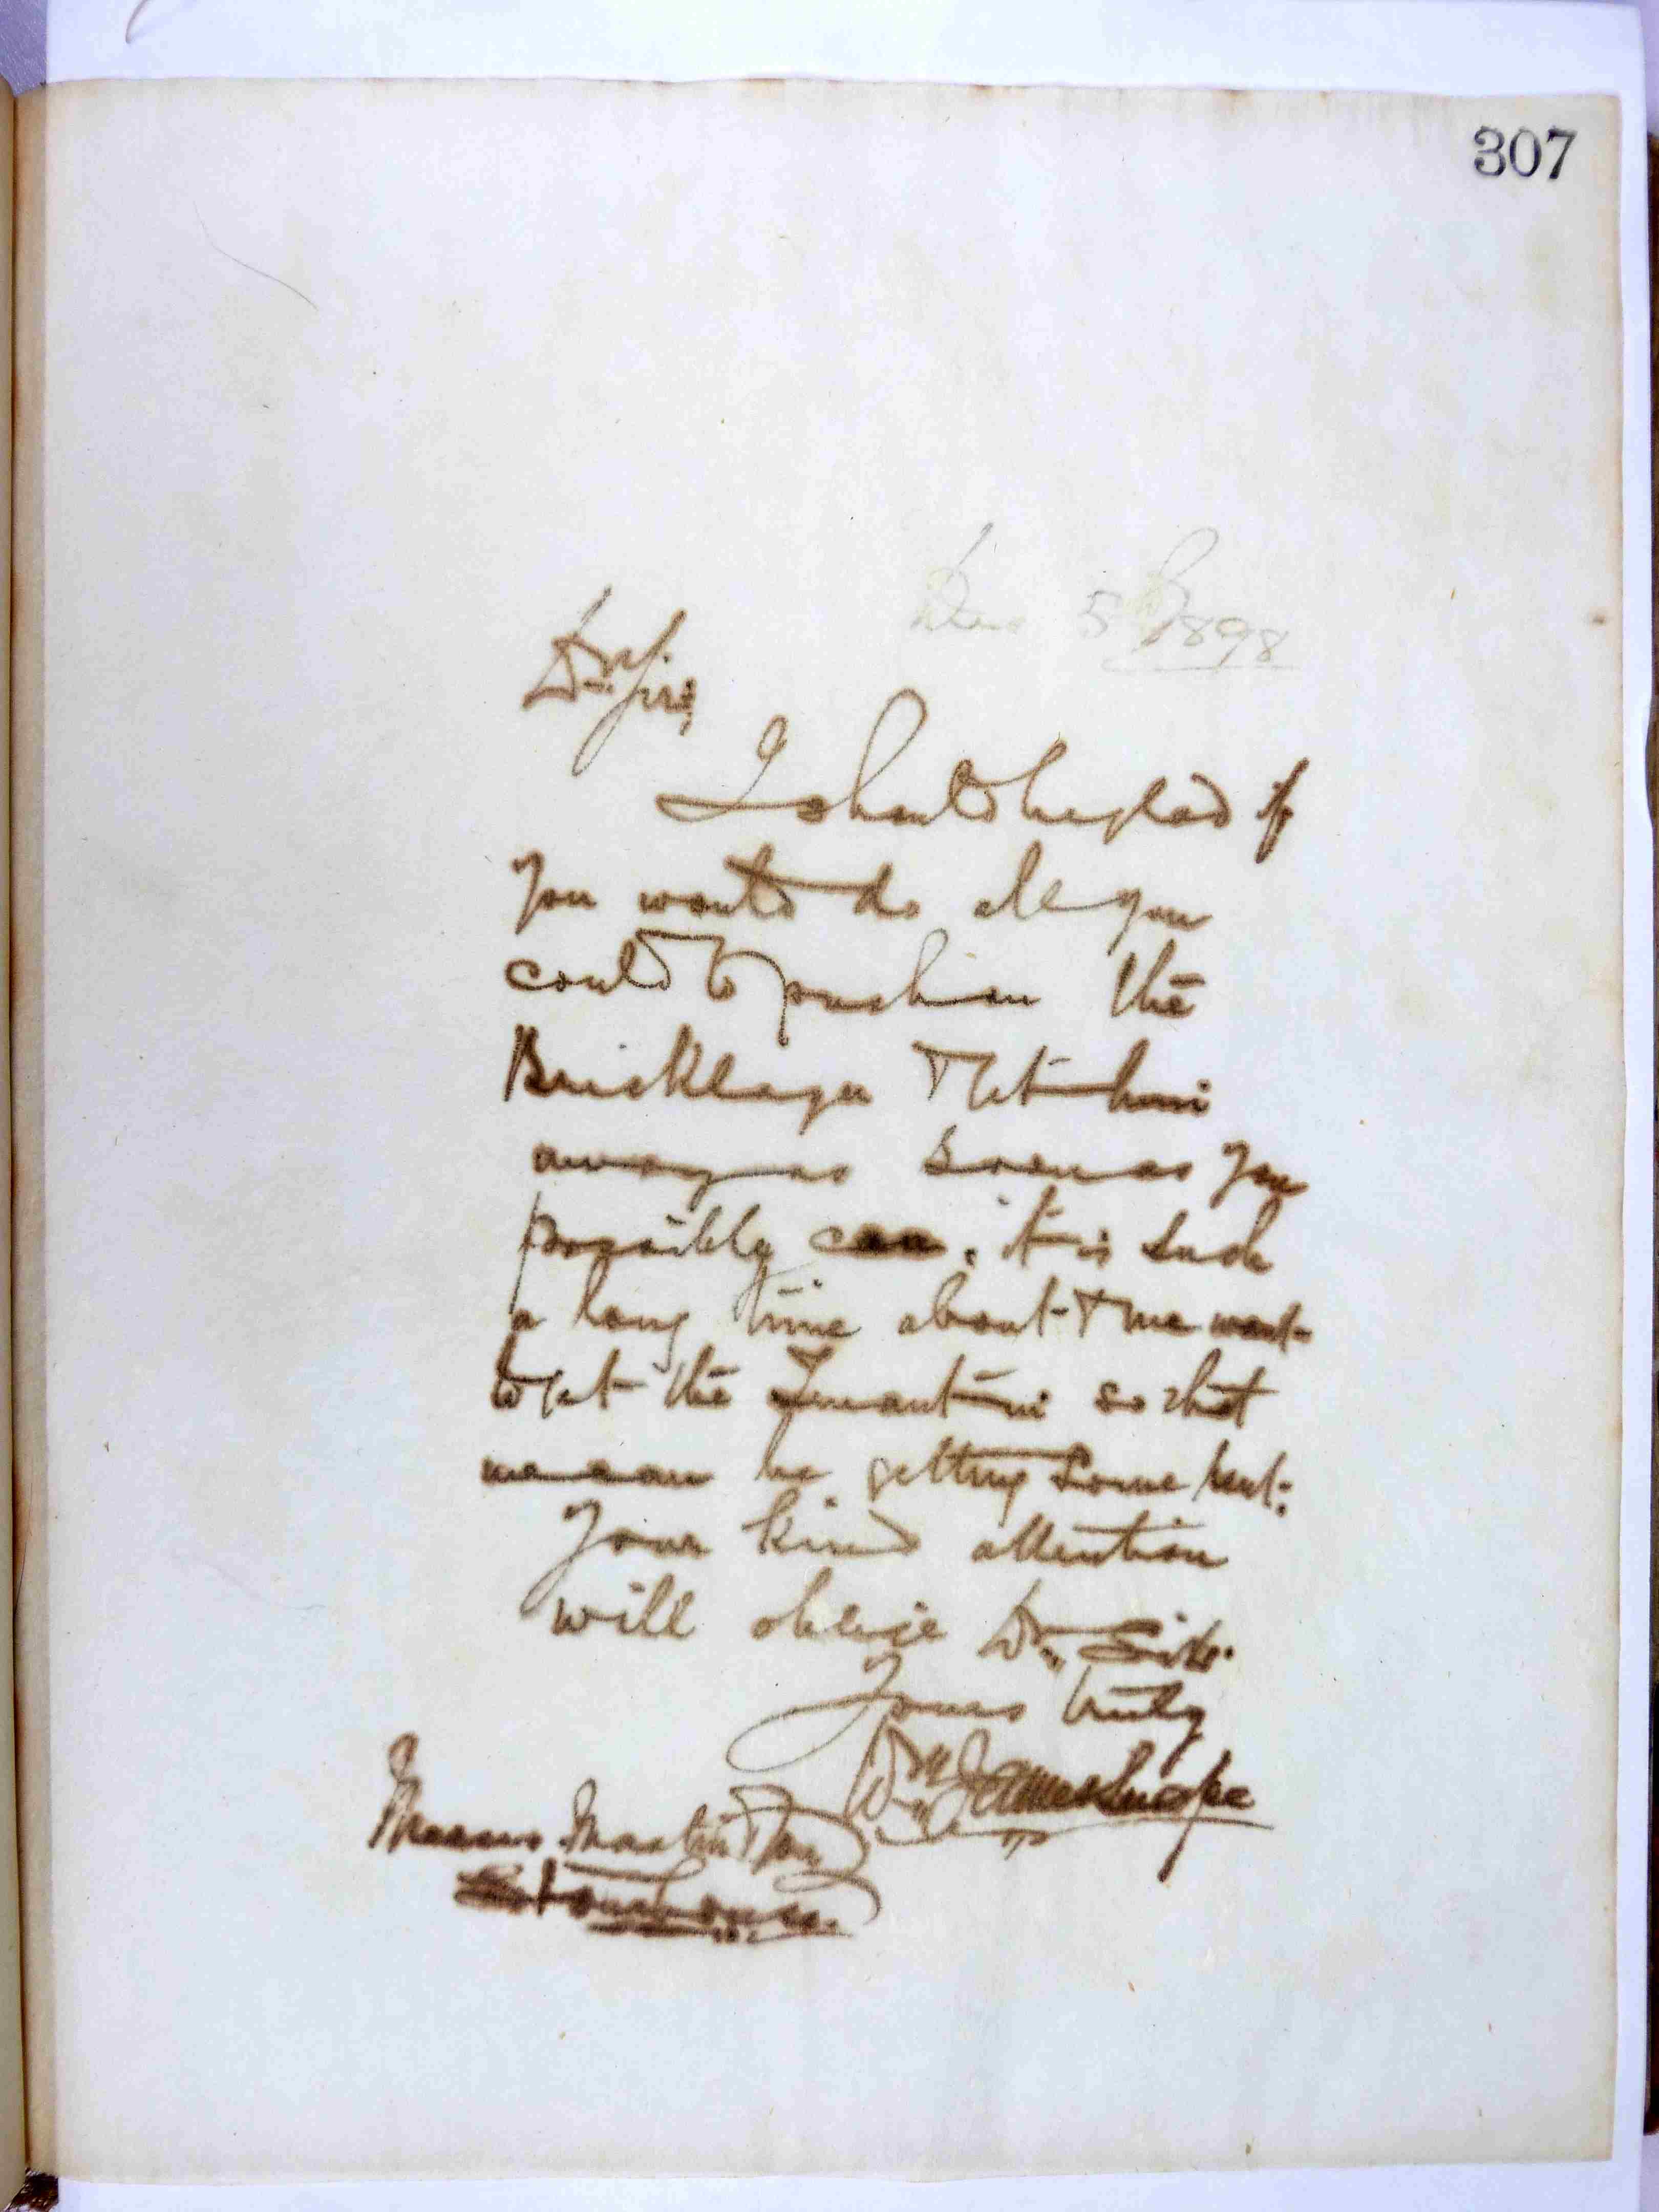 307
5th 1898
Dr Sirs,
I should be glad if
you would do all you
could to push on the
Bricklayer & let him
away as soon as you
possibly can. it is such
a long time about & we want
to get the Tenant in so that
we can be getting some rent.
Your kind attention
will oblige Dr Sirs.
Yours truly
Wm James
Messrs Martin & Son
Stonehouse.